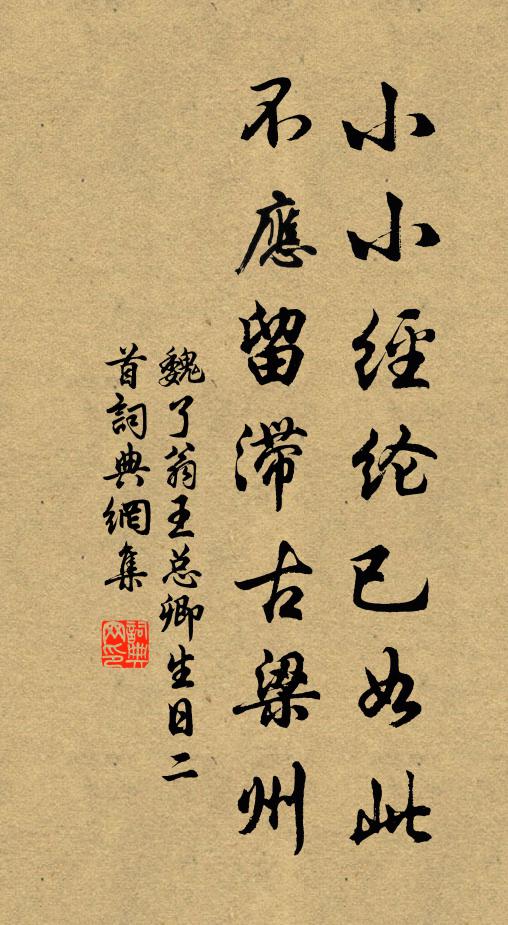 小小經纶已如此
不應留滞古梁州
魏了翁王总卿生日二
首詞典網集
詞典
网印